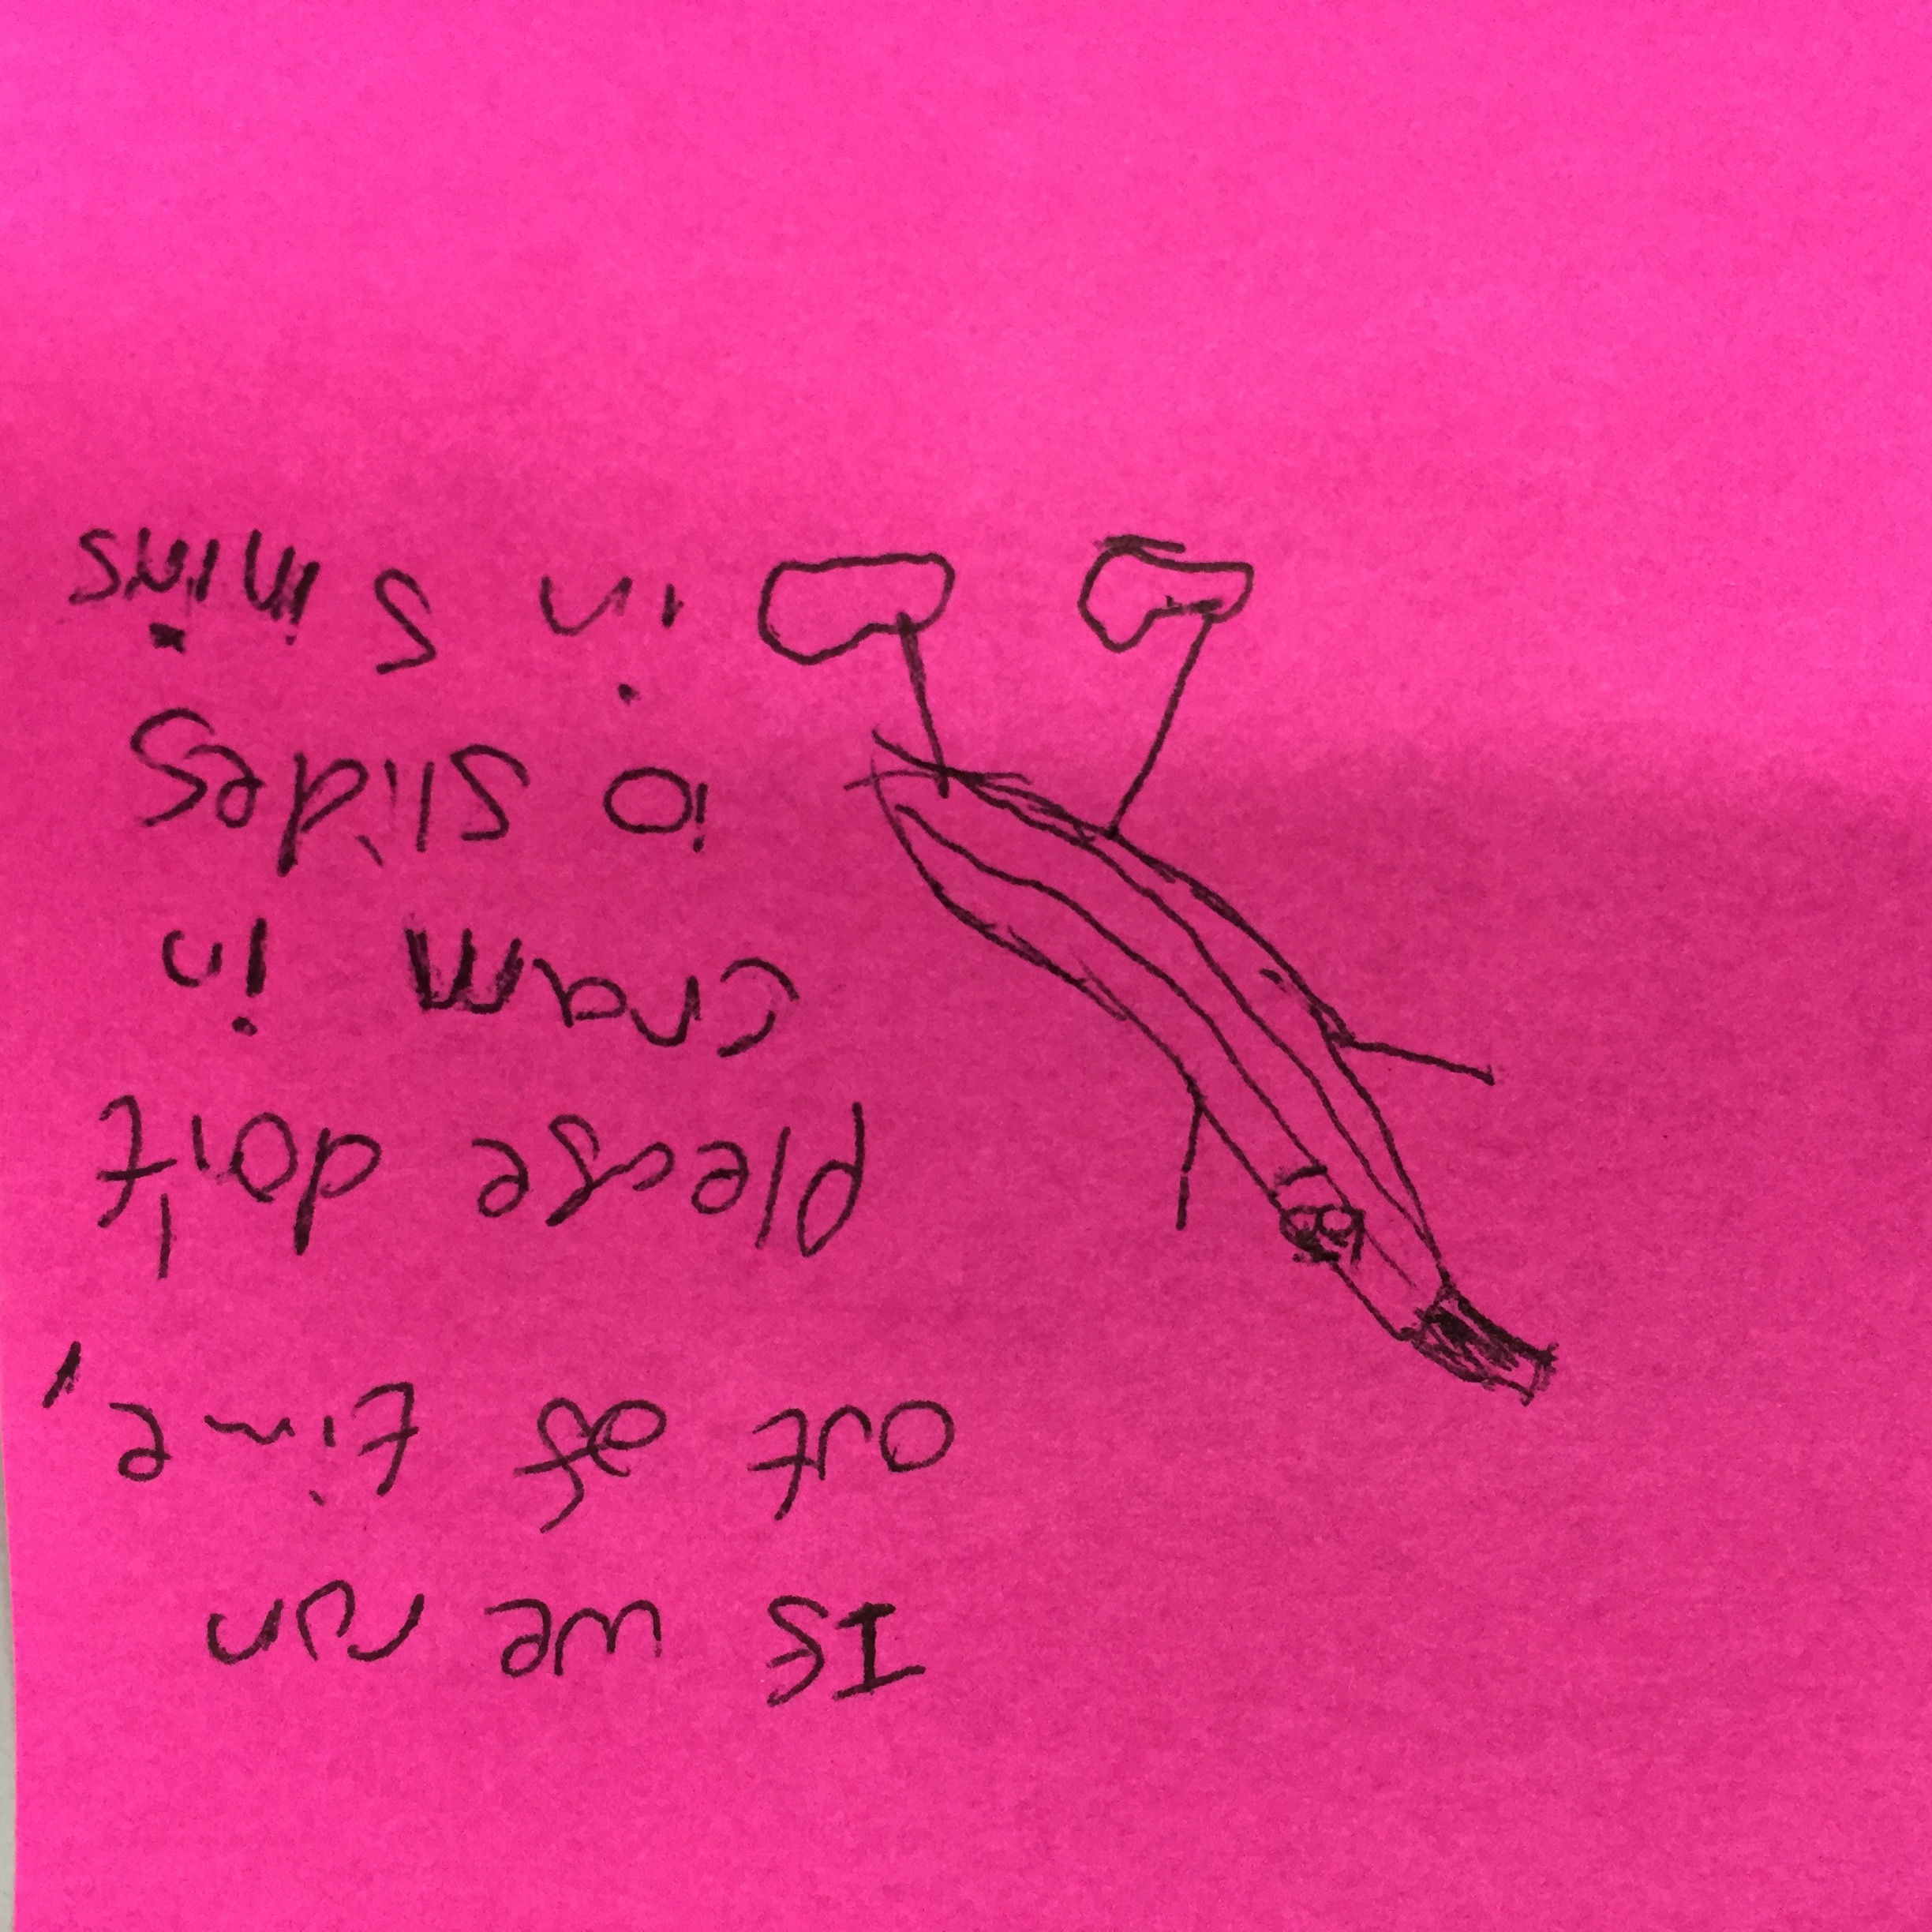 If we run
out of time,
Please don't
cram in
10 slides
in 5 mins